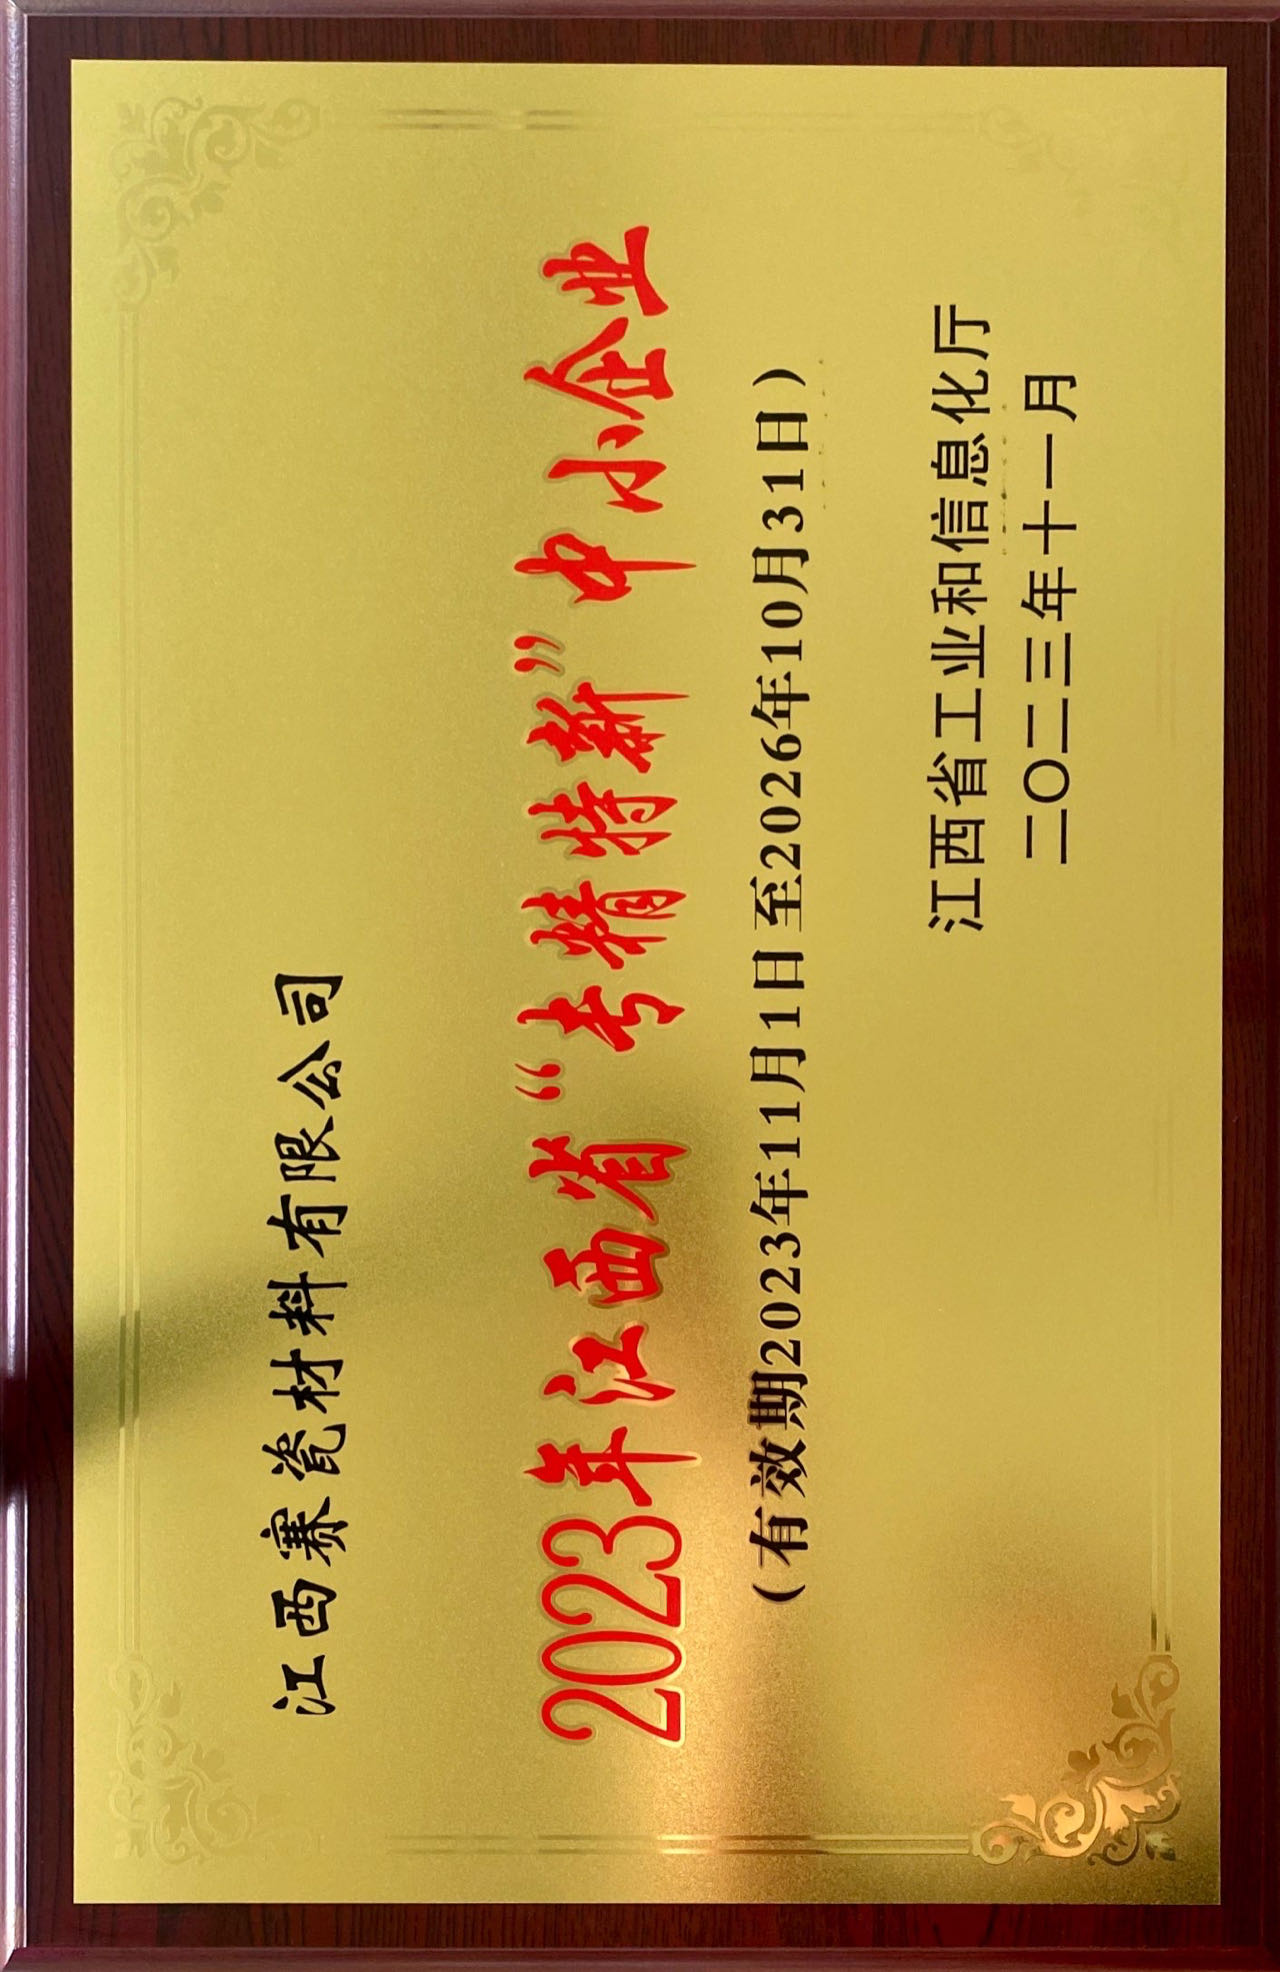 江西赛瓷材料有限公司
2023年江西省“专精特新”中小企业
(有效期2023年11月1日至2026年10月31日)
江西省工业和信息化厅
二〇二三年十一月